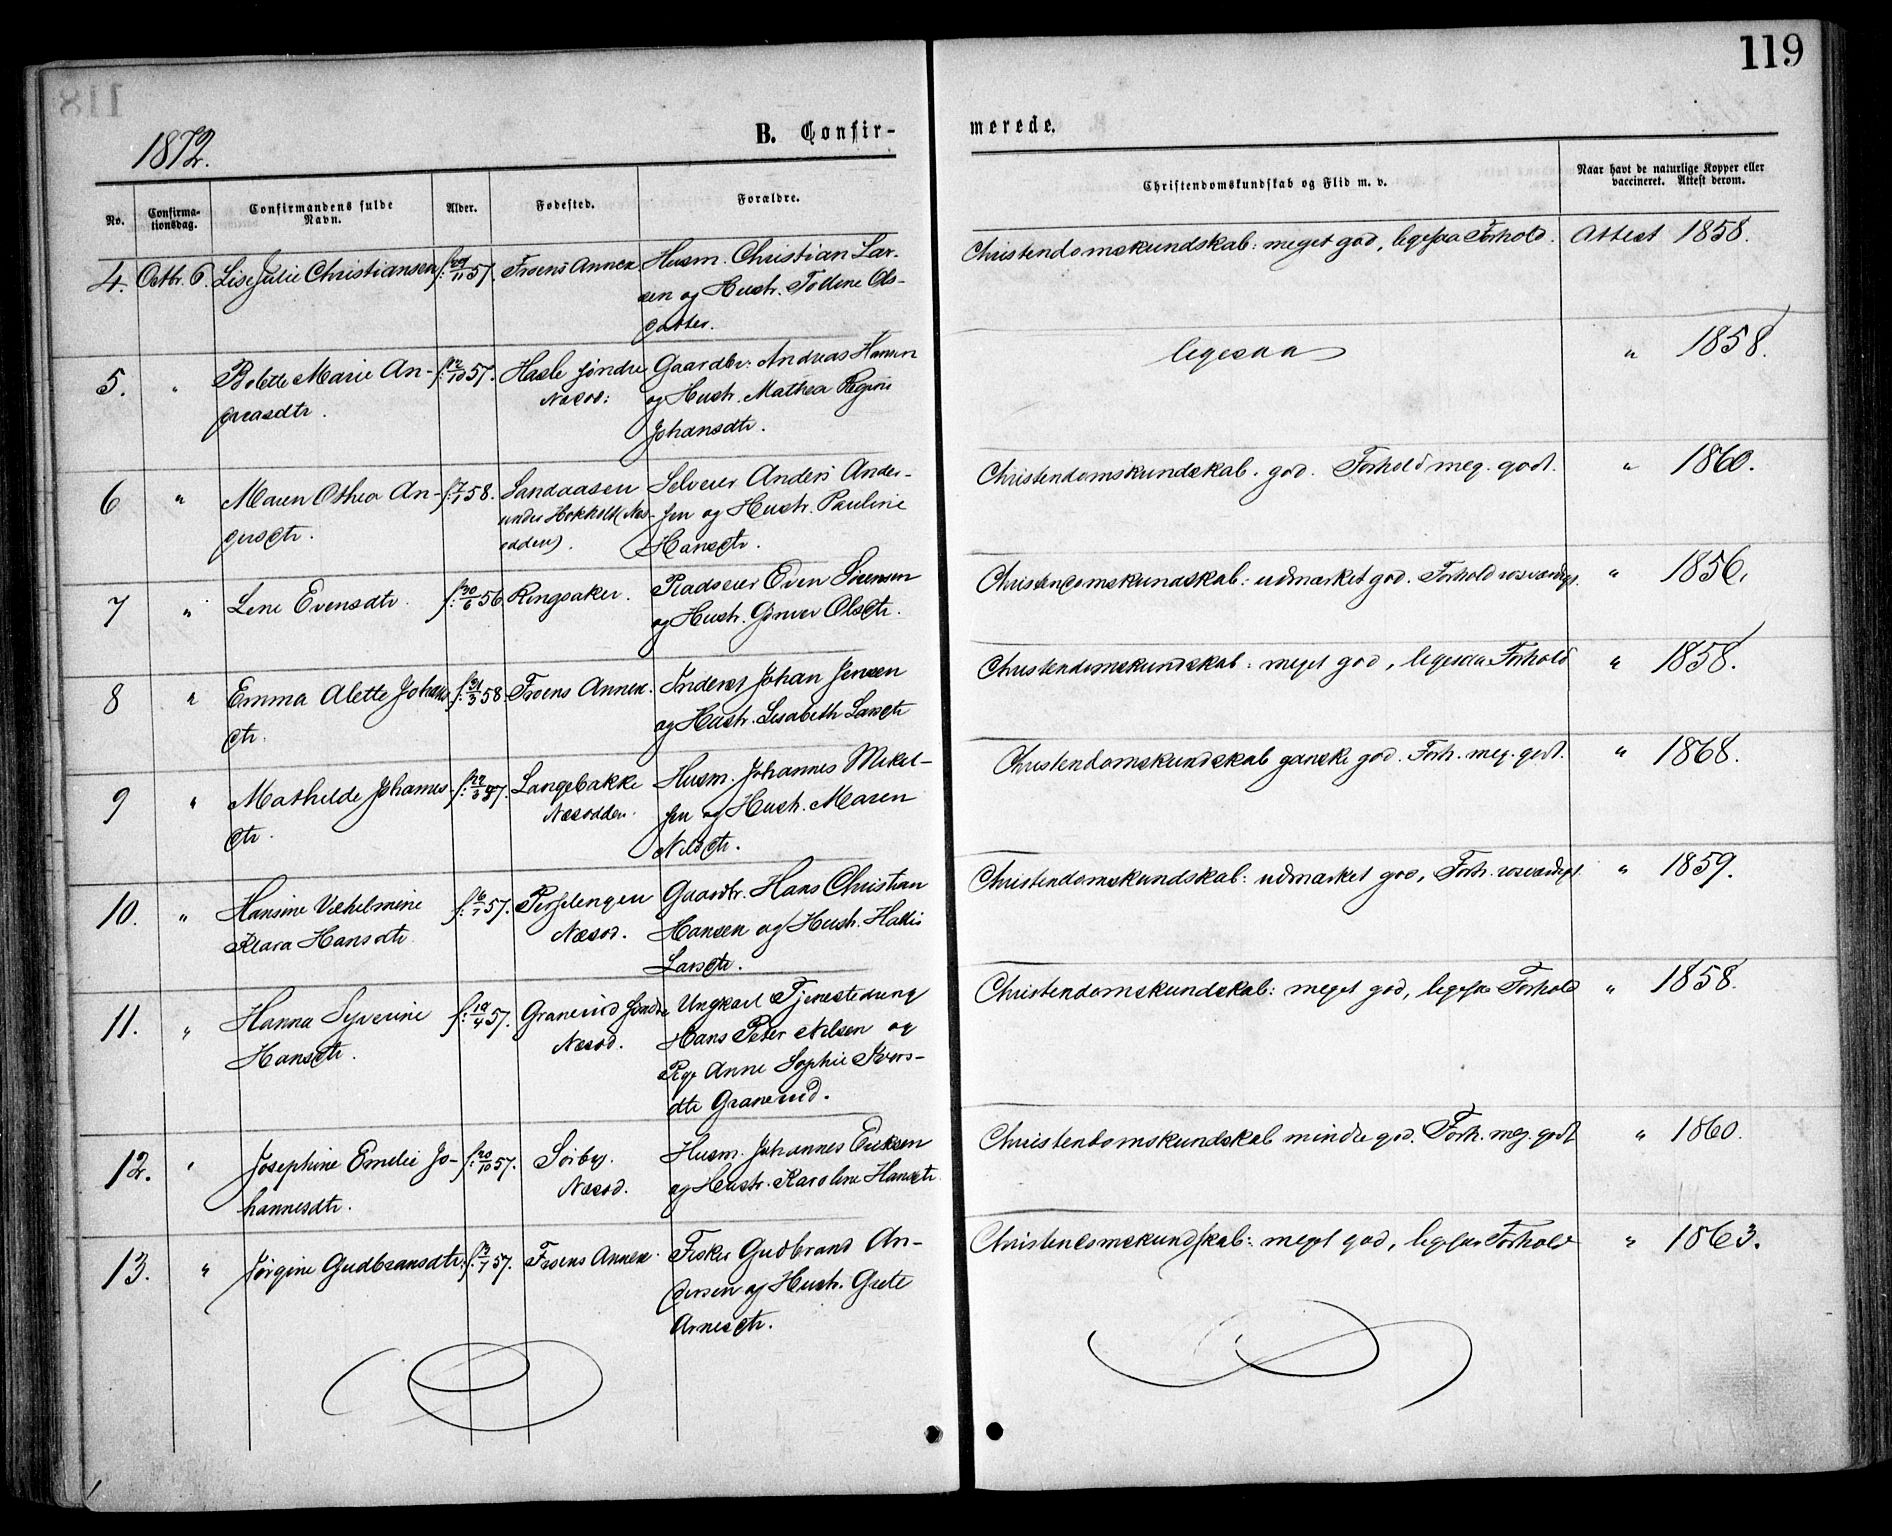 119
1872.
B. Confir-
merede.
No.
Confirma-
tionsdag.
Confirmandens fulde
Navn.
Alder.
Fødested.
Forældre.
Christendomskundskab og Flid m. v.
Naar havt de naturlige Kopper eller
vaccineret. Attest derom.
4. Octbr. 6. Lise Julie Christiansen f: 57. Froens Annex Husm. Christian Lar-
sen og Hustr. Ols-
datter.
Christendomskundskab: meget god, ligesaa Forhold. Attest 1858.
5. " Bolette Marie An- f: 12/10 57. Hasle søndre Gaardbr: Andreas Hansen
dreasdtr. Næsod: og Hustr. Mathea Regine
Johansdtr.
ligesaa " 1858.
6 " Maren Othea An- f: 7/1 58. Sandaasen Selveier Anders Ander-
dersdtr. under Hokholt (Næs- sen og Hustr. Pauline
odden). Hansdtr.
Christendomskundskab. god. Forhold meg. godt. " 1860.
7 " Lene Evensdtr. f: 30/6 56 Ringsaker. Pladseier Even Sörensen
og Hustr. Olsdtr.
Christendomskundskab: udmærket god. Forhold rosværdigt. " 1856.
8 " Emma Alette Johans f: 31/3 58. Froens Annex. Inderst Johan Jensen
dtr. og Hustr. Lisabeth Larsdtr
Christendomskundskab: meget god, ligesaa Forhold " 1858.
9 " Mathilde Johannes- f: 57. Langebakke Husm. Johannes Mikel-
dtr. Næsodden. sen og Hustr. Maren
Nilsdtr.
Christendomskundskab ganske god. Forh. meg. godt. " 1868.
10. " Hansine Vilhelmine f: 57. Gaardbr. Hans Christian
Klara Hansdtr. Næsod. Hansen og Hustr.
Larsdtr.
Christendomskundskab: udmærket god, Forh. rosværdigt " 1859.
11. " Hanna Syverine f: 19/4 57. Granerud søndre Ungkarl Tjenestedreng
Hansdtr. Næsod. Hans Peter Nilsen og
Pige Anne Sophie
dtr Granerud.
Christendomskundskab: meget god, ligesaa Forhold " 1858.
12. " Josephine Emelie Jo- f: 20/10 57. Sörby. Husm. Johannes Eriksen
hannesdtr. Næsod. og Hustr. Karoline Hansdtr
Christendomskundskab mindre god. Forh. meg. godt " 1860.
13. " Jörgine Gudbransdtr. f: 57. Froens Annex. Fisker Gudbrand An-
dersen og Hustr. Grete
Arnesdtr.
Christendomskundskab: meget god, ligesaa Forhold " 1863.